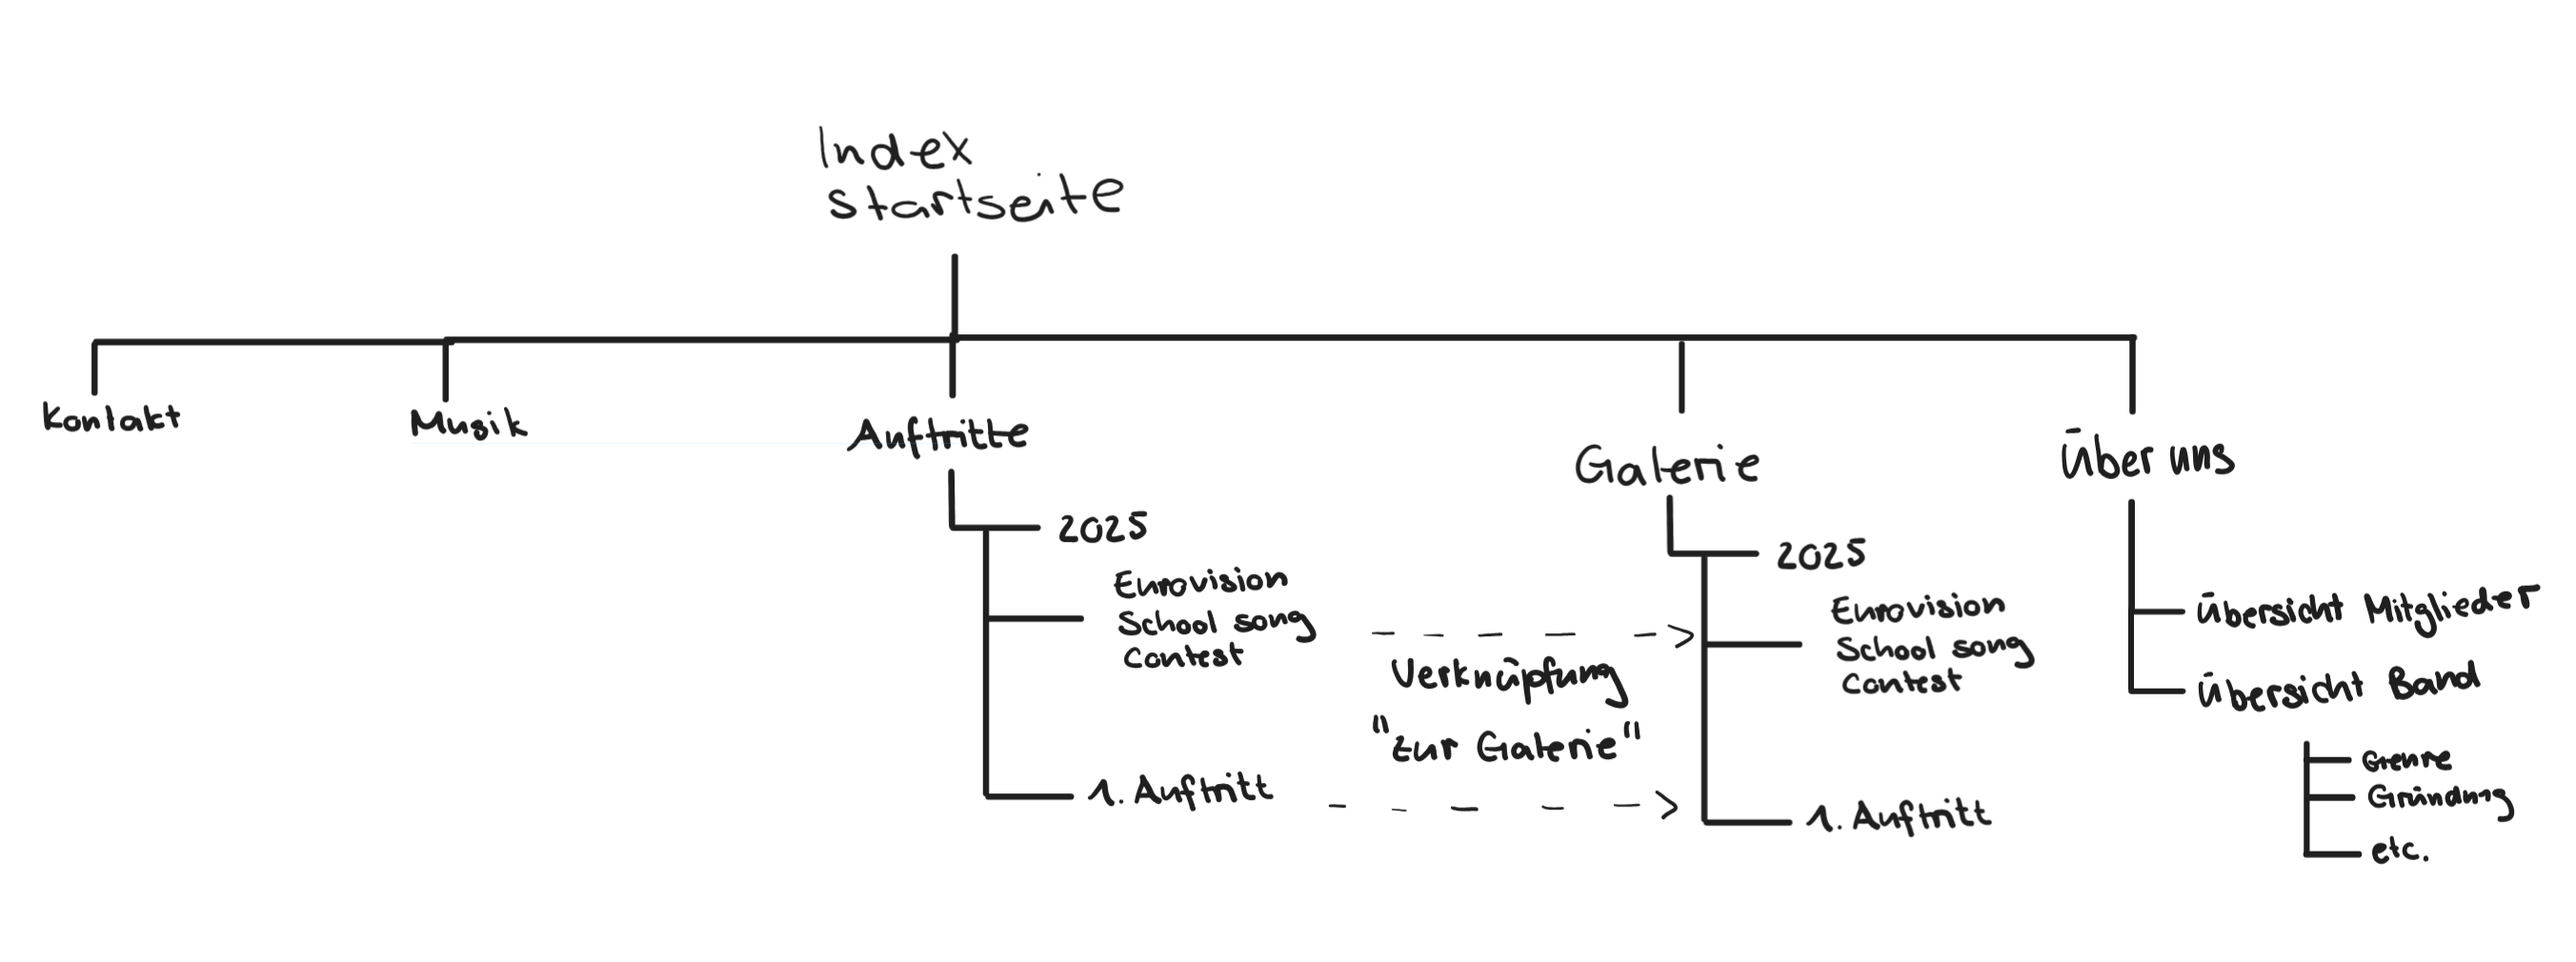 Index
Startseite
Kontakt
Musik
Auftritte
2025
Eurovision
School song
Contest
1. Auftritt
Verknüpfung
"zur Galerie"
Galerie
2025
Eurovision
School song
Contest
1. Auftritt
Über uns
Übersicht Mitglieder
Übersicht Band
Genre
Gründung
etc.